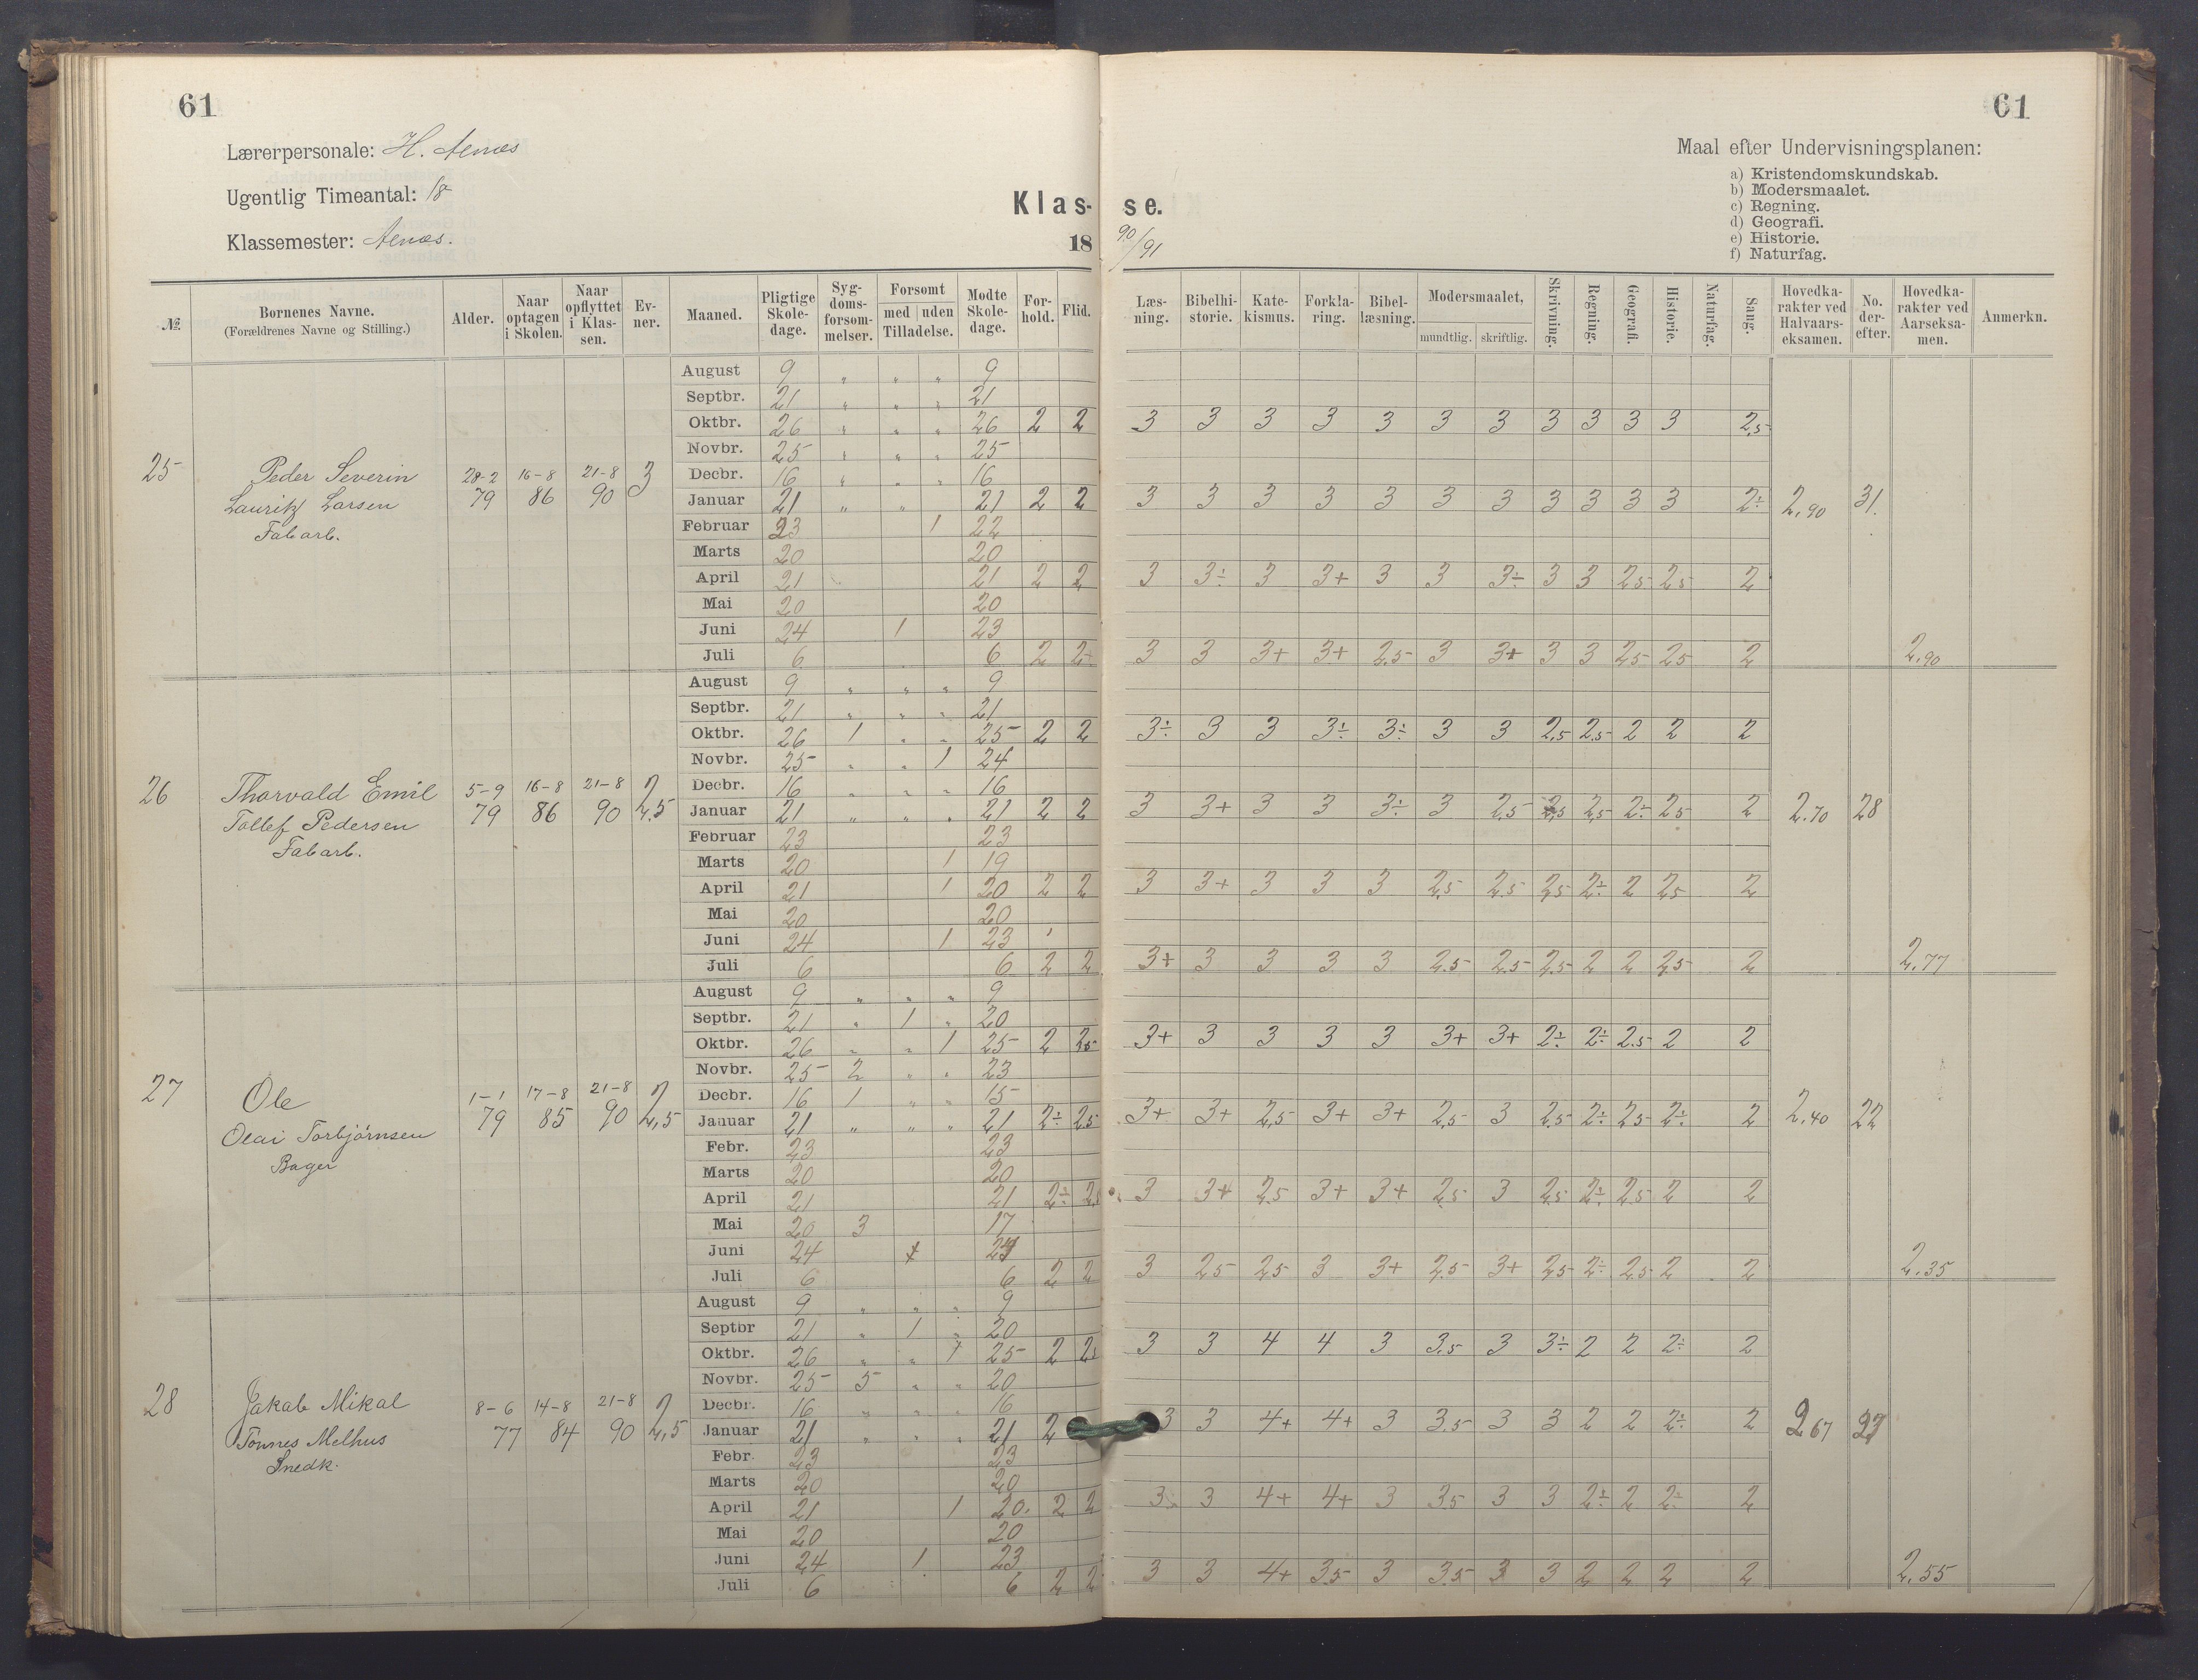 61
61
Lærerpersonale: H. Aenæs
Ugentlig Timeantal: 18
Klassemester: Aenæs.
Klas- se.
18 90/91
Maal efter Undervisningsplanen:
a) Kristendomskundskab.
b) Modersmaalet.
c) Regning.
d) Geografi.
e) Historie.
f) Naturfag.
№ | Bornenes Navne. (Forældrenes Navne og Stilling.) | Alder. | Naar optagen i Skolen. | Naar opflyttet i Klassen. | Evner. | Maaned. | Pligtige Skoledage. | Sygdomsforsommelser. | Forsomt med uden Tilladelse. | Modte Skoledage. | Forhold. | Flid. | Læsning. | Bibelhistorie. | Katekismus. | Forklaring. | Bibellæsning. | Modersmaalet, mundtlig. skriftlig. | Skrivning. | Regning. | Geografi. | Historie. | Naturfag. | Sang. | Hovedkarakter ved Halvaarseksamen. | No. derefter. | Hovedkarakter ved Aarseksamen. | Anmerkn.
25 Peder Severin 28-2 79 16-8 86 21-8 90 3
Lauritz Larsen
Fabarb.
August 9 " " " 9
Septbr. 21 " " " 21
Oktbr. 26 " " " 26 2 2 3 3 3 3 3 3 3 3 3 3 3 2,5
Novbr. 25 " " " 25
Decbr. 16 " " " 16
Januar 21 " " 21 2 2 3 3 3 3 3 3 3 3 3 3 3 2÷ 2,90 31.
Februar 23 1 22
Marts 20 20
April 21 21 2 2 3 3÷ 3 3+ 3 3 3÷ 3 3 2,5 2,5 2
Mai 20 20
Juni 24 1 23
Juli 6 6 2 2 3 3 3+ 3+ 2,5 3 3+ 3 3 2,5 2,5 2 2,90
26 Thorvald Emil 5-9 79 16-8 86 21-8 90 2,5
Tollef Pedersen
Fabarb.
August 9 " " " 9
Septbr. 21 " " " 21
Oktbr. 26 1 " " 25 2 2 3÷ 3 3 3÷ 3÷ 3 3 2,5 2,5 2 2 2
Novbr. 25 " " 1 24
Decbr. 16 " " " 16
Januar 21 " " " 21 2 2 3 3+ 3 3 3÷ 3 2,5 2,5 2,5 2÷ 2,5 2 2.70 28
Februar 23 23
Marts 20 1 19
April 21 1 20 2 2 3 3+ 3 3 3 2,5 2,5 2,5 2÷ 2 2,5 2
Mai 20 20
Juni 24 1 23
Juli 6 6 2 2 3+ 3 3 3 3 2,5 2,5 2,5 2 2 2,5 2 2,77
27 Ole 1-1 79 17-8 85 21-8 90 2,5
Olai Torbjörnsen
Bager
August 9 " " " 9
Septbr. 21 " 1 " 20
Oktbr. 26 " " 1 25 2 2,5 3+ 3 3 3 3 3+ 3+ 2÷ 2÷ 2,5 2 2
Novbr. 25 2 " " 23
Decbr. 16 1 " " 15
Januar 21 " " " 21 2÷ 2,5 3+ 3+ 2,5 3+ 3+ 2,5 3 2,5 2÷ 2,5 2÷ 2 2,40 22
Febr. 23 23
Marts 20 20
April 21 21 2÷ 3 3+ 2,5 3+ 3+ 2,5 3 2,5 2÷ 2,5 2 2
Mai 20 3 17
Juni 24
Juli 6 6 2 2 3 2,5 2,5 3 3+ 2,5 3+ 2,5 2÷ 2,5 2 2 2,35
28 Jakab Mikal 8-6 77 14-8 84 21-8 90 2,5
Tönnes Melhus
Snedk.
August 9 " " " 9
Septbr 21 " 1 " 20
Oktbr. 26 " " 1 25 2 3 3 4 4 3 3,5 3 3÷ 2 2 2÷ 2
Novbr. 25 5 " " 20
Decbr. 16 " " " 16
Januar 21 " " " 21 2 3 3 4+ 4+ 3 3,5 3 3 2 2 2÷ 2 2,67 27
Febr. 23 23
Marts 20 20
April 21 1 20 2 2 3 3 4+ 4+ 3 3,5 3 3 2÷ 2 2÷ 2
Mai 20 20
Juni 24 1 23
Juli 6 6 2 2 3 3 4+ 3,5 3 3,5 3 3 2 2 2 2 2,55